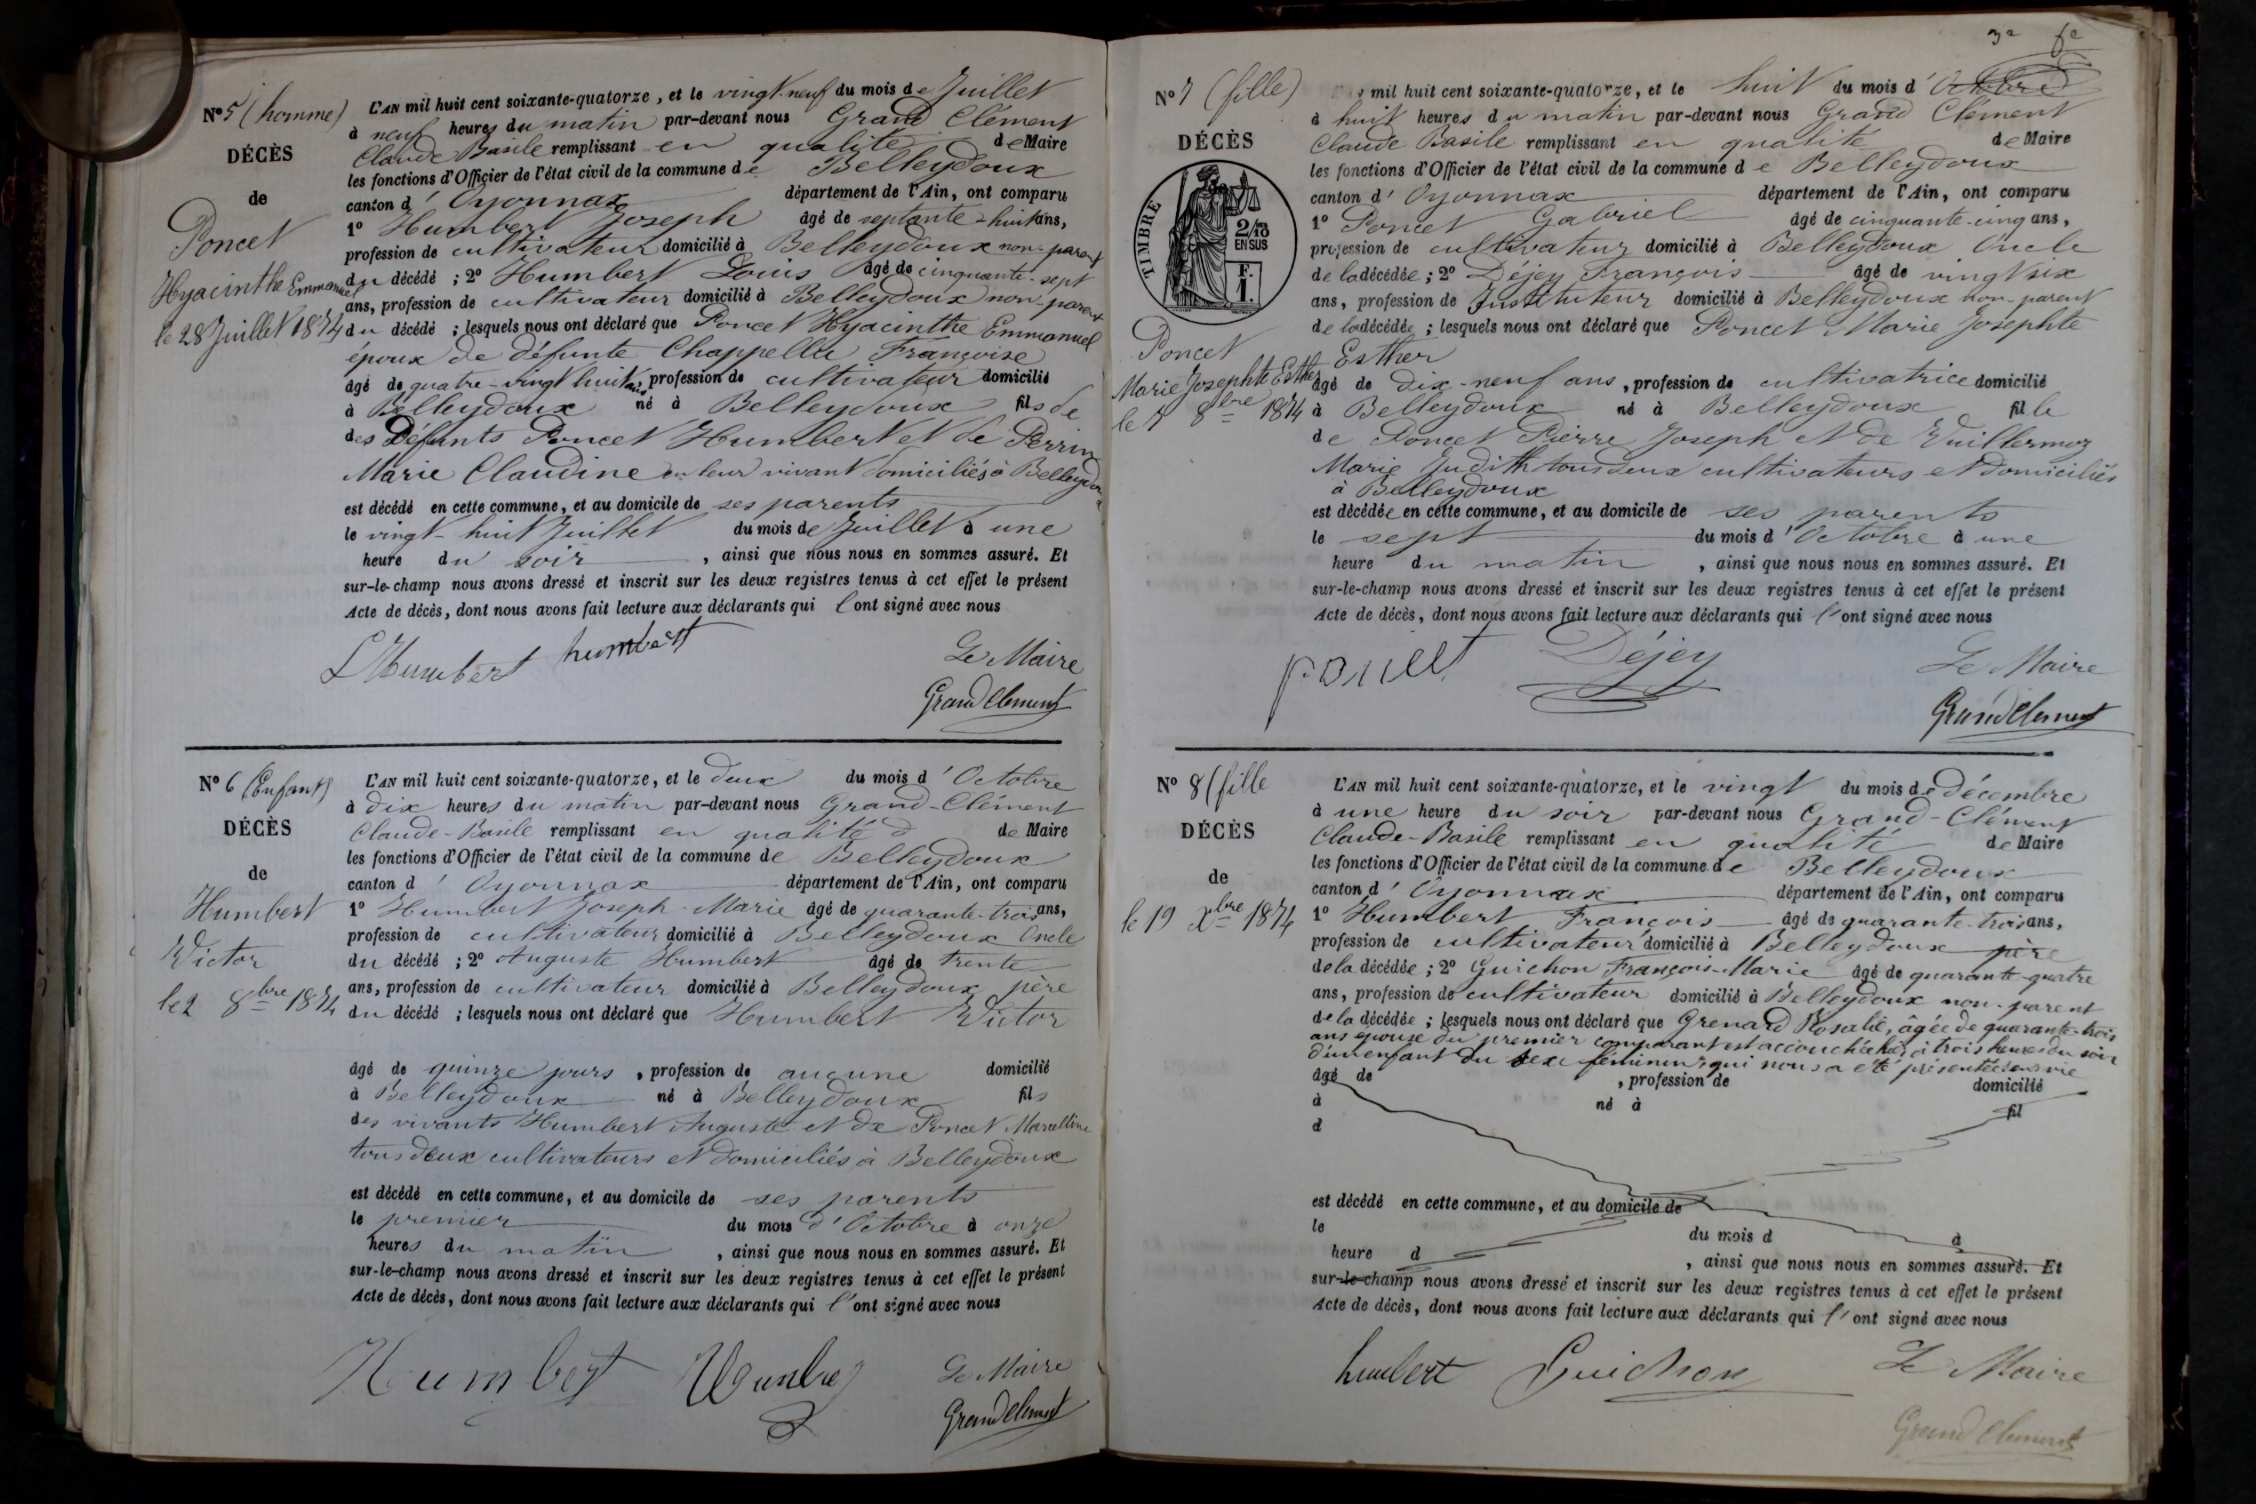 N° 5 (homme)
DÉCÈS
de
Poncet
Hyacinthe Emmanuel
le 28 Juillet 1874
L'AN mil huit cent soixante-quatorze, et le vingt-neuf du mois de Juillet
à neuf heures du matin par-devant nous Grand Clément
Claude Basile remplissant en qualité de Maire
les fonctions d'Officier de l'état civil de la commune de Belleydoux
canton d'Oyonnax département de l'Ain, ont comparu
1° Humbert Joseph âgé de septante-huit ans,
profession de cultivateur domicilié à Belleydoux non-parent
du décédé ; 2° Humbert Louis âgé de cinquante-sept
ans, profession de cultivateur domicilié à Belleydoux non-parent
du décédé ; lesquels nous ont déclaré que Poncet Hyacinthe Emmanuel
époux de défunte Chappellu Françoise
âgé de quatre-vingt huit ans, profession de cultivateur domicilié
à Belleydoux né à Belleydoux fils de
des Défunts Poncet Humbert et de Perrin
Marie Claudine en leur vivant domiciliés à Belleydoux
est décédé en cette commune, et au domicile de ses parents
le vingt-huit Juillet du mois de Juillet à une
heure du soir, ainsi que nous nous en sommes assuré. Et
sur-le-champ nous avons dressé et inscrit sur les deux registres tenus à cet effet le présent
Acte de décès, dont nous avons fait lecture aux déclarants qui l'ont signé avec nous
L Humbert humbert Le Maire
Grandclement
N° 6 (Enfant)
DÉCÈS
de
Humbert
Victor
le 2 8bre 1874
L'AN mil huit cent soixante-quatorze, et le deux du mois d'Octobre
à dix heures du matin par-devant nous Grand-Clément
Claude-Basile remplissant en qualité d de Maire
les fonctions d'Officier de l'état civil de la commune de Belleydoux
canton d'Oyonnax département de l'Ain, ont comparu
1° Humbert Joseph-Marie âgé de quarante-trois ans,
profession de cultivateur domicilié à Belleydoux Oncle
du décédé ; 2° Auguste Humbert âgé de trente
ans, profession de cultivateur domicilié à Belleydoux père
du décédé ; lesquels nous ont déclaré que Humbert Victor
âgé de quinze jours, profession de aucune domicilié
à Belleydoux né à Belleydoux fils
des vivants Humbert Auguste et de Poncet Marcelline
tous deux cultivateurs et domiciliés à Belleydoux
est décédé en cette commune, et au domicile de ses parents
le premier du mois d'Octobre à onze
heures du matin, ainsi que nous nous en sommes assuré. Et
sur-le-champ nous avons dressé et inscrit sur les deux registres tenus à cet effet le présent
Acte de décès, dont nous avons fait lecture aux déclarants qui l'ont signé avec nous
Humbert Humbert Le Maire
Grandclement
3e fe
N° 7 (fille)
DÉCÈS
TIMBRE
2/10
EN SUS
F.
1.
Poncet
Marie Josephte Esther
le 7 8bre 1874
mil huit cent soixante-quatorze, et le huit du mois d'Octobre
à huit heures du matin par-devant nous Grand Clément
Claude Basile remplissant en qualité de Maire
les fonctions d'Officier de l'état civil de la commune de Belleydoux
canton d'Oyonnax département de l'Ain, ont comparu
1° Poncet Gabriel âgé de cinquante-cinq ans,
profession de cultivateur domicilié à Belleydoux Oncle
de la décédée ; 2° Déjey François âgé de vingt six
ans, profession de Instituteur domicilié à Belleydoux non-parent
de la décédée ; lesquels nous ont déclaré que Poncet Marie Josephte
Esther
âgé de dix-neuf ans, profession de cultivatrice domicilié
à Belleydoux né à Belleydoux fille
de Poncet Pierre Joseph et de Vuillermoz
Marie Judith tous deux cultivateurs et domiciliés
à Belleydoux
est décédée en cette commune, et au domicile de ses parents
le sept du mois d'Octobre à une
heure du matin, ainsi que nous nous en sommes assuré. Et
sur-le-champ nous avons dressé et inscrit sur les deux registres tenus à cet effet le présent
Acte de décès, dont nous avons fait lecture aux déclarants qui l'ont signé avec nous
poncet Déjey Le Maire
Grandclement
N° 8 (fille
DÉCÈS
de
le 19 Xbre 1874
L'AN mil huit cent soixante-quatorze, et le vingt du mois de décembre
à une heure du soir par-devant nous Grand-Clément
Claude-Basile remplissant en qualité de Maire
les fonctions d'Officier de l'état civil de la commune de Belleydoux
canton d'Oyonnax département de l'Ain, ont comparu
1° Humbert François âgé de quarante-trois ans,
profession de cultivateur domicilié à Belleydoux père
de la décédée ; 2° Guichon François-Marie âgé de quarante-quatre
ans, profession de cultivateur domicilié à Belleydoux non-parent
de la décédée ; lesquels nous ont déclaré que Grenard Rosalie, âgée de quarante-trois
ans épouse du premier comparant est accouchée hier à trois heures du soir
d'un enfant du sexe féminin, qui nous a été présentée sans vie
âgé de , profession de domicilié
à né à fil
d
est décédé en cette commune, et au domicile de
le du mois d à
heure d , ainsi que nous nous en sommes assuré. Et
sur-le-champ nous avons dressé et inscrit sur les deux registres tenus à cet effet le présent
Acte de décès, dont nous avons fait lecture aux déclarants qui l'ont signé avec nous
humbert Guichon Le Maire
Grandclement